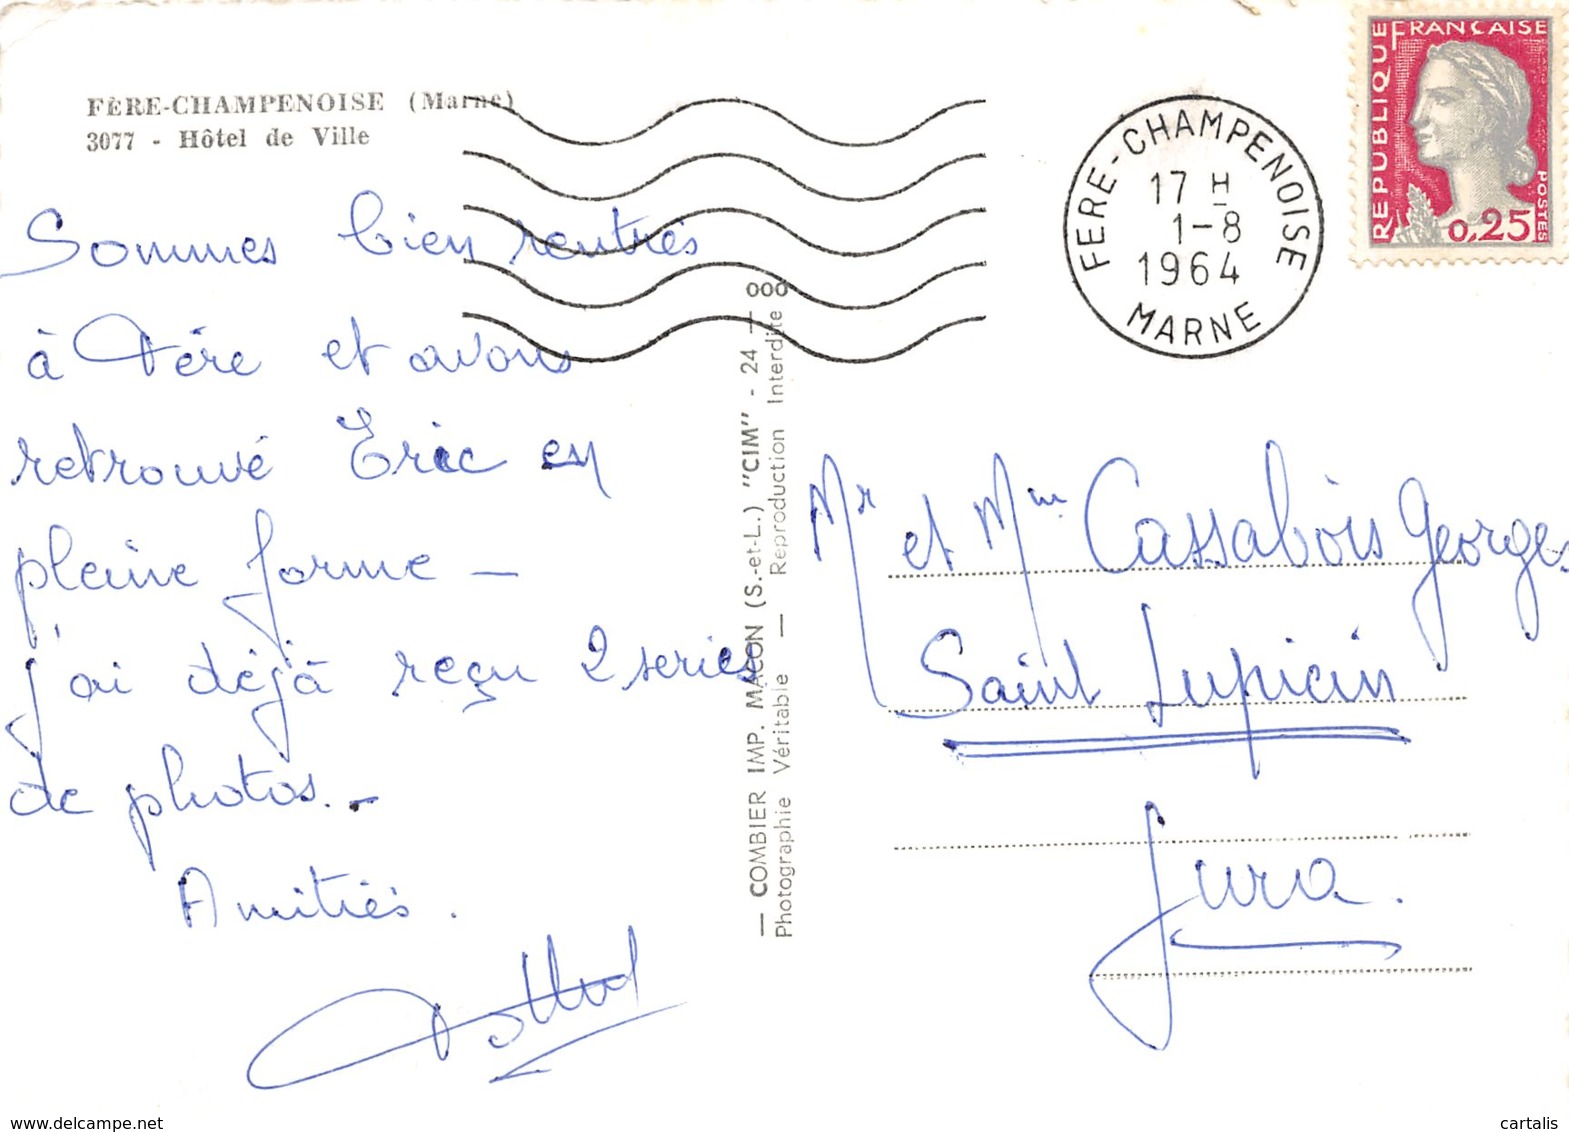 FÈRE-CHAMPENOISE (Marne)
3077 - Hôtel de Ville
Sommes bien rentrés
à Fère et avons
retrouvé Eric en
pleine forme -
j'ai déjà reçu 2 series
de photos. -
Amitiés.
— COMBIER IMP. MACON (S.-et-L.) "CIM" - 24 — 000
Photographie Véritable — Reproduction Interdite
FERE-CHAMPENOISE
17 H
1-8
1964
MARNE
REPUBLIQUE FRANCAISE
POSTES
0,25
Mr et Mme Cassabois Georges
Saint Lupicin
Jura.
delcampe.net
cartalis